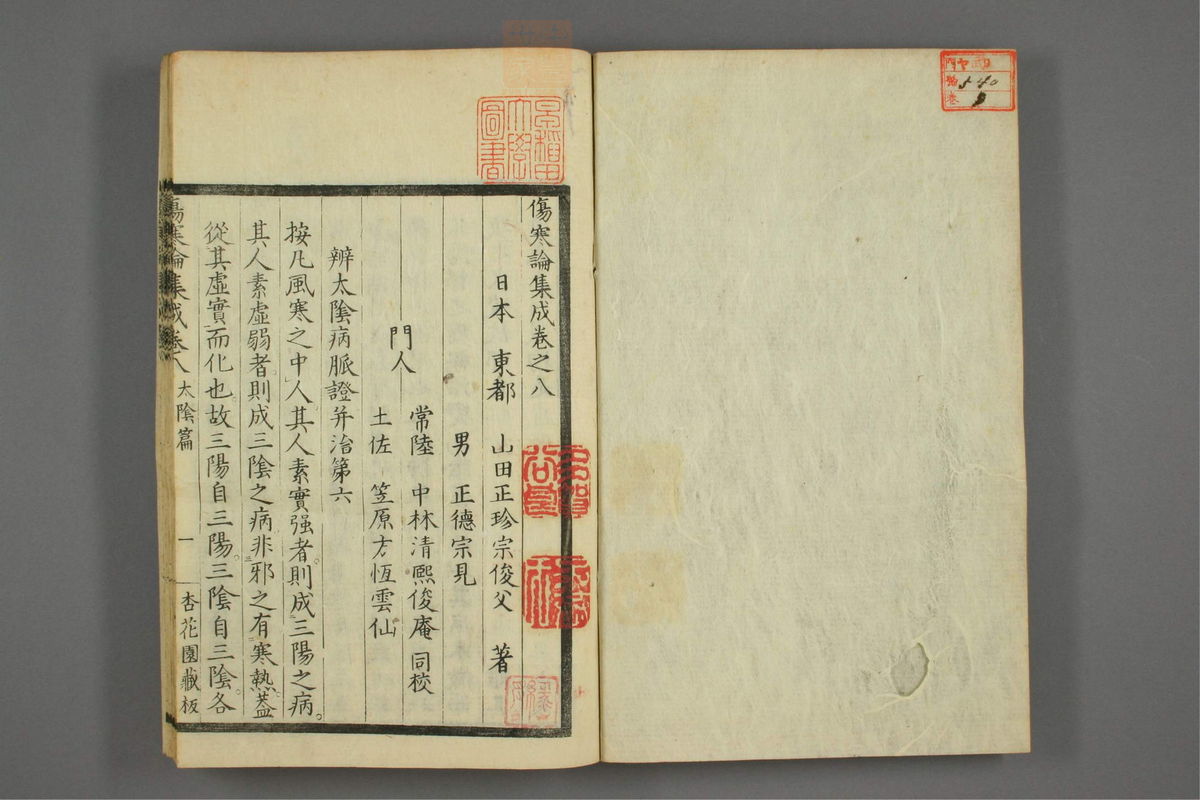 傷寒論集成卷之八
日本 東都 山田正珍宗俊父 著
男 正德宗見
門人
常陸 中林清熙俊庵 同校
土佐 笠原方恆雲仙
辨太陰病脈證并治第六
按凡風寒之中人其人素實强者則成三陽之病。
其人素虛弱者則成三陰之病非邪之有寒熱蓋
從其虛實而化也故三陽自三陽三陰自三陰各
傷寒論集成卷八 太陰篇 一 杏花園藏板
早稻田大學圖書
門 ヤ
號 540
卷